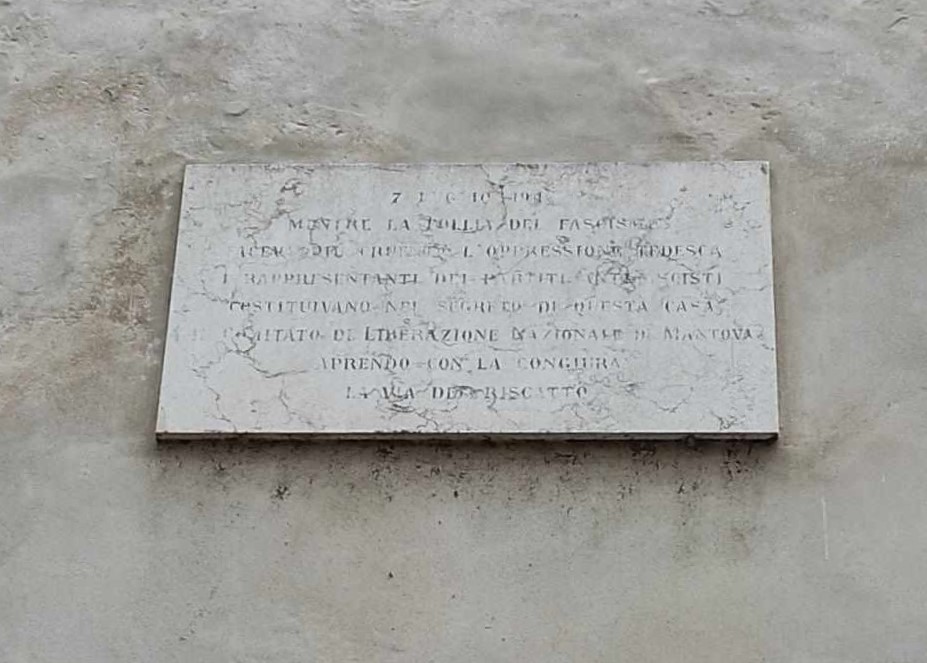 7 LUGLIO 194
MENTRE LA FOLLIA DEL FASCISMO
FACEVA PIU' CRUENTA L'OPPRESSIONE TEDESCA
I RAPPRESENTANTI DEI PARTITI ANTIFASCISTI
COSTITUIVANO NEL SEGRETO DI QUESTA CASA
IL COMITATO DI LIBERAZIONE NAZIONALE DI MANTOVA
APRENDO CON LA CONGIURA
LA VIA DEL RISCATTO